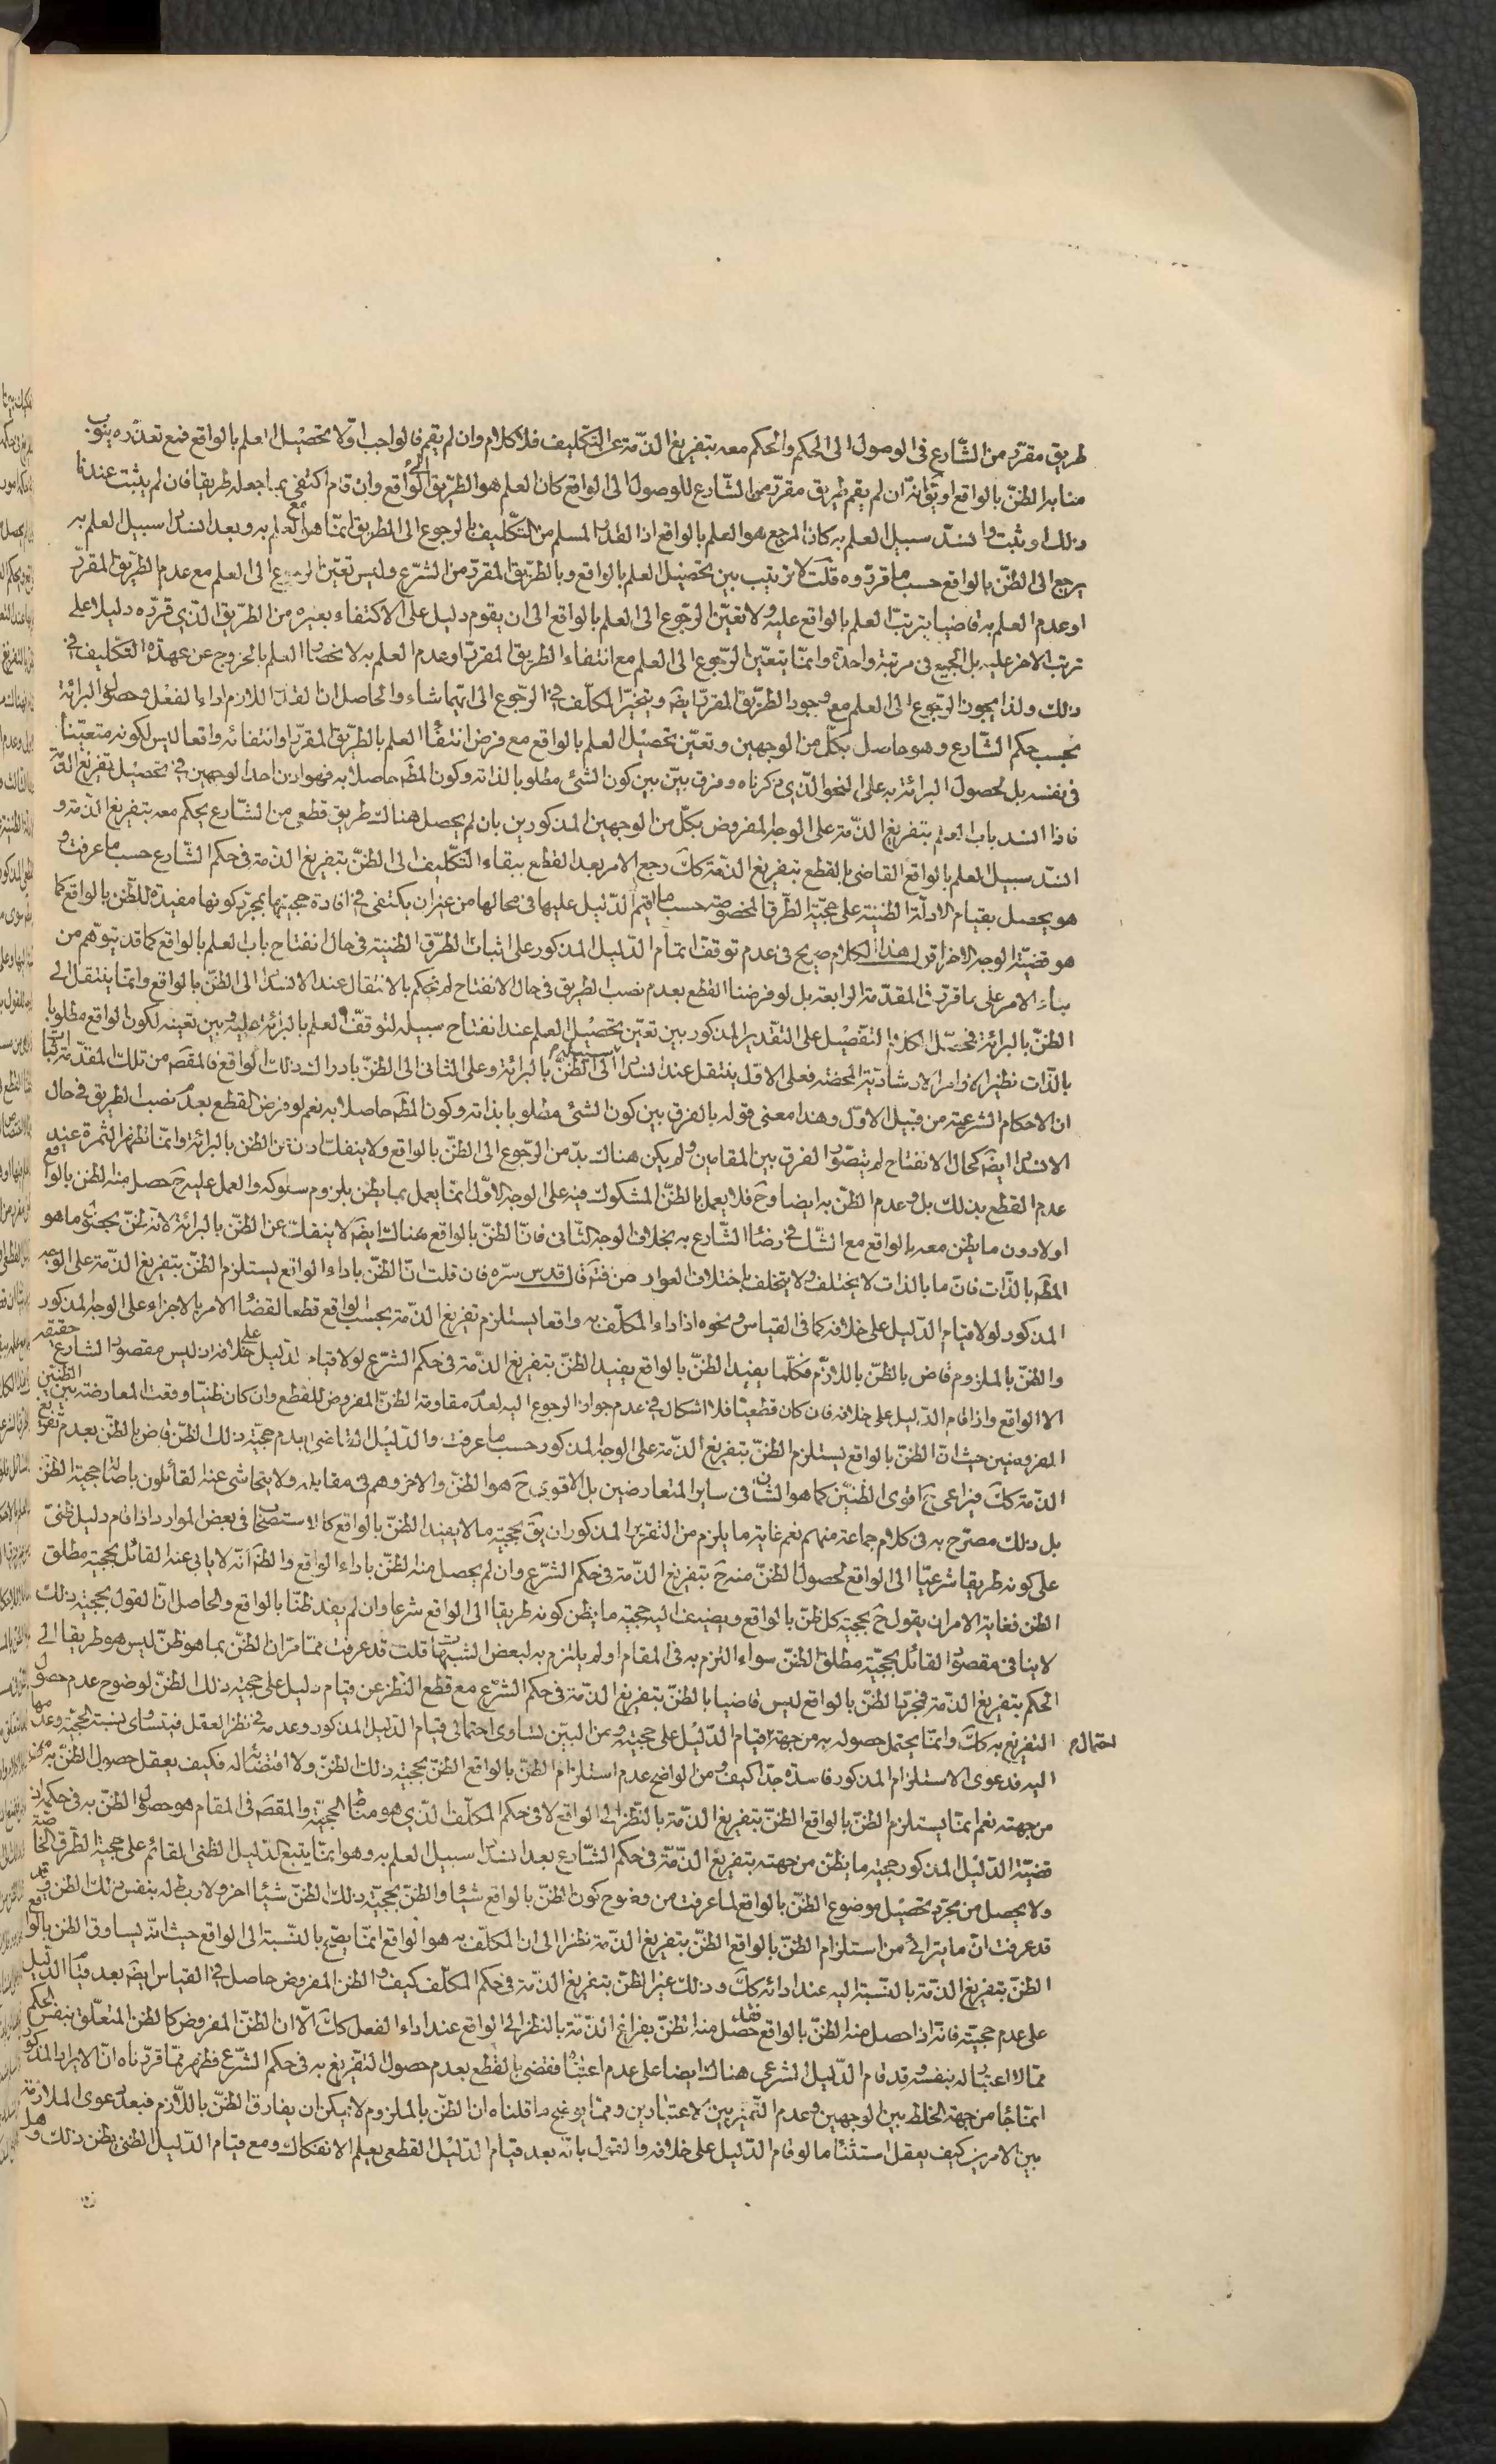 طريق مقرّر من الشّارع فى الوصول الى الحكم والحكم معه بتفريغ الذّمة عن التكليف فلا كلام وان لم يقم فالواجب اوّلا تحصيل العلم بالواقع فمع تعذّره ينوب
منابه الظنّ بالواقع او يقَ انّه ان لم يقم طريق مقرّر من الشّارع للوصول الى الواقع كان العلم هو الطّريق الى الواقع وان قام اكتفى بما جعله طريقا فان لم يثبت عندنا
ذلك او ثبت وانسدّ سبيل العلم به كان المرجع هو العلم بالواقع اذ القدر المسلم من التكليف بالرجوع الى الطريق انّما هو مع العلم به وبعد انسداد سبيل العلم به
يرجع الى الظنّ بالواقع حسب ما قرّروه قلت لا ترتيب بين تحصيل العلم بالواقع وبالطّريق المقرّر من الشرع وليس تعيّن الرجوع الى العلم مع عدم الطّريق المقرّر
او عدم العلم به قاضيا بترتّب العلم بالواقع عليه ولا تعيّن الرّجوع الى العلم بالواقع الى ان يقوم دليل على الاكتفاء بغيره من الطّريق الّذى قرّره دليلا على
ترتّب الاخر عليه بل الجميع فى مرتبة واحدة وانّما يتعيّن الرّجوع الى العلم مع انتفاء الطريق المقرّر او عدم العلم به لانحصار العلم بالخروج عن عهدة التكليف فى
ذلك ولذا يجوز الرّجوع الى العلم مع وجود الطّريق المقرّر ايضَ ويتخيّر المكلّف فى الرّجوع الى ايّهما شاء والحاصل ان القدر اللازم اداء الفعل وحصول البرائة
بحسب حكم الشّارع وهو حاصل بكلّ من الوجهين وتعيّن تحصيل العلم بالواقع مع فرض انتفاء العلم بالطّريق المقرّر او انتفائه واقعا ليس لكونه متعيّنا
فى نفسه بل لحصول البرائة به على النحو الّذى ذكرناه وفرق بيّن بين كون الشئ مطلوبا لذاته وكون المطَ حاصلا به فهو اذن احد الوجهين فى تحصيل تفريغ الذمّة
فاذا انسد باب العلم بتفريغ الذّمة على الوجه المفروض بكلّ من الوجهين المذكورين بان لم يحصل هناك طريق قطعى من الشّارع يحكم معه بتفريغ الذّمة و
انسدّ سبيل العلم بالواقع القاضى بالقطع بتفريغ الذمّة ككَ رجع الامر بعد القطع ببقاء التّكليف الى الظنّ بتفريغ الذّمة فى حكم الشّارع حسب ما عرفت و
هو يحصل بقيام الادلّة الظّنية على حجيّة الطّرق المخصوصة حسب ما اقيم الدّليل عليها فى محالّها من غير ان يكتفى فى افادة حجيتها بمجرّد كونها مفيدة للظّن بالواقع كما
هو قضيّة الوجه الاخر اقول هذا الكلام صريح فى عدم توقف اتمام الدّليل المذكور على اثبات الطّرق الظنية فى حال انفتاح باب العلم بالواقع كما قد يتوهّم من
بناء الامر على ما قرّر فى المقدّمة الرابعة بل لو فرضنا القطع بعدم نصب الطريق فى حال الانفتاح لم نحكم بالانتقال عند الانسداد الى الظنّ بالواقع وانّما ينتقل الى
الظنّ بالبرائة فمحصّل الكلام التفصيل على التقدير المذكور بين تعيّن تحصيل العلم عند انفتاح سبيله لتوقّف العلم بالبرائة عليه وبين تعينه لكون الواقع مطلوبا
بالذّات نظير الاوامر الارشاديّة المحضة فعلى الاوّل ينتقل عند انسداد سبيله الى الظنّ بالبرائة وعلى الثانى الى الظنّ بادراك ذلك الواقع فالمقصَ من تلك المقدّمة اثبات
ان الاحكام الشرعيّة من قبيل الاوّل وهذا معنى قوله بالفرق بين كون الشئ مطلوبا بذاته وكون المطَ حاصلا به نعم لو فرض القطع بعدم نصب الطّريق فى حال
الانسداد ايضَ كحال الانفتاح لم يتصوّر الفرق بين المقامين ولم يكن هناك بدّ من الرّجوع الى الظنّ بالواقع ولا ينفكّ اذن عن الظن بالبرائة وانّما تظهر الثّمرة عند
عدم القطع بذلك بل وعدم الظنّ به ايضا وحَ فلا يعمل بالظنّ المشكوك فيه على الوجه الاوّل انّما يعمل بما يظن بلزوم سلوكه والعمل عليه حَ حصل منه الظن بالواقع
اولا دون ما يظن معه بالواقع مع الشّك فى رضاء الشّارع به بخلاف الوجه الثّانى فانّ الظنّ بالواقع هناك ايضَ لا ينفكّ عن الظنّ بالبرائة لانه ظنّ بحصول ما هو
المطَ بالذّات فانّ ما بالذات لا يختلف ولا يتخلف باختلاف العوارض فتمَ قال قدس سرّه فان قلت انّ الظنّ باداء الواقع يستلزم الظنّ بتفريغ الذّمة على الوجه
المذكور لولا قيام الدّليل على خلافه كما فى القياس ونحوه اذ اداء المكلّف به واقعا يستلزم تفريغ الذّمة بحسب الواقع قطعا لقضاء الامر بالاجزاء على الوجه المذكور
والظنّ بالملزوم قاض بالظنّ باللازم فكلّما يفيد الظنّ بالواقع يفيد الظنّ بتفريغ الذّمة فى حكم الشرع لولا قيام الدليل على خلافه اذ ليس مقصود الشارع حقيقة
الا الواقع واذا قام الدّليل على خلافه فان كان قطعيّا فلا اشكال فى عدم جواز الرجوع اليه لعدم مقاومة الظنّ المفروض للقطع وان كان ظنيّا وقعت المعارضة بين الظنين
المفروضين حيث ان الظنّ بالواقع يستلزم الظنّ بتفريغ الذّمة على الوجه المذكور حسب ما عرفت والدّليل القاضى بعدم حجيّة ذلك الظنّ قاض بالظنّ بعدم تفريغ
الذّمة ككَ فيراعى حَ اقوى الظنيّن كما هو الشان فى ساير المتعارضين بل الاقوى حَ هو الظنّ والاخر وهم فى مقابله ولا يتحاشى عنه القائلون باصالة حجية الظن
بل ذلك مصرّح به فى كلام جماعة منهم نعم غاية ما يلزم من التقرير المذكور ان يقَ بحجيّة ما لا يفيد الظنّ بالواقع كالاستصحاب فى بعض الموارد اذا قام دليل ظنىّ
على كونه طريقا شرعيّا الى الواقع لحصول الظنّ منه حَ بتفريغ الذّمة فى حكم الشرع وان لم يحصل منه الظنّ باداء الواقع والظَ انّه لا يابى عنه القائل بحجيّة مطلق
الظن فغاية الامر ان يقول حَ بحجية كل ظنّ بالواقع ويضيف اليه حجية ما يظن كونه طريقا الى الواقع شرعا وان لم يفد ظنّا بالواقع والحاصل انّ القول بحجيّة ذلك
لا ينافى مقصود القائل بحجيّة مطلق الظنّ سواء التزم به فى المقام او لم يلتزم به لبعض الشبهات قلت قد عرفت ممّا مرّ ان الظنّ بما هو ظنّ ليس هو طريقا الى
الحكم بتفريغ الذّمة فمجرّد الظنّ بالواقع ليس قاضيا بالظنّ بتفريغ الذّمة فى حكم الشرع مع قطع النّظر عن قيام دليل على حجيّة ذلك الظنّ لوضوح عدم حصول
التفريغ به ككَ وانّما يحتمل حصوله به من جهة احتمال قيام الدّليل على حجيّته ومن البيّن تساوى احتمالى قيام الدّليل المذكور وعدمه فى نظر العقل فيتساوى نسبة الحجيّة وعدمها
اليه فدعوى الاستلزام المذكور فاسدة جدّا كيف ومن الواضح عدم استلزام الظنّ بالواقع الظنّ بحجيّة ذلك الظنّ ولا اقتضائه له فكيف يعقل حصول الظنّ به
من جهته نعم انّما يستلزم الظنّ بالواقع الظنّ بتفريغ الذّمة بالنّظر الى الواقع لا فى حكم المكلّف الّذى هو مناط الحجيّة والمقصَ فى المقام هو حصول الظنّ به فى حكمه اذ
قضيّة الدّليل المذكور حجية ما يظنّ من جهته بتفريغ الذّمّة فى حكم الشّارع بعد انسداد سبيل العلم به وهو انّما يتبع الدّليل الظنى القائم على حجية الطّرق الخاصّة
ولا يحصل من مجرّد تحصيل موضوع الظنّ بالواقع لما عرفت من وضوح كون الظنّ بالواقع شيئا والظنّ بحجيّة ذلك الظنّ شيئا اخر ولا ربط له بنفس ذلك الظن
قد عرفت انّ ما يترائى من استلزام الظنّ بالواقع الظنّ بتفريغ الذّمة نظرا الى ان المكلّف به هو الواقع انّما يصّح بالنّسبة الى الواقع حيث انّه يساوق الظن بالواقع
الظنّ بتفريغ الذّمة بالنّسبة اليه عند ادائه ككَ وذلك غير الظنّ بتفريغ الذّمة فى حكم المكلّف كيف والظن المفروض حاصل فى القياس ايضَ بعد قيام الدّليل
على عدم حجيّته فانّه اذا حصل منه الظنّ بالواقع فقد حصل منه الظنّ بفراغ الذّمّة بالنظر الى الواقع عند اداء الفعل ككَ الّا ان الظنّ المفروض كالظن المتعلّق بنفس الحكم
ممّا لا اعتبار له بنفسه وقد قام الدّليل الشرعى هناك ايضا على عدم اعتباره فقضى بالقطع بعدم حصول التفريغ به فى حكم الشّرع فظهر ممّا قرّرناه انّ الايراد المذكور
انّما جاء من جهة الخلط بين الوجهين وعدم التّميز بين الاعتبارين وممّا يوضح ما قلناه ان الظنّ بالملزوم لا يمكن ان يفارق الظنّ باللّازم فبعد دعوى الملازمة
بين الامرين كيف يعقل استثناء ما لو قام الدّليل على خلافه والقول بانّه بعد قيام الدّليل القطعى يعلم الانفكاك ومع قيام الدّليل الظنى يظن ذلك وهل